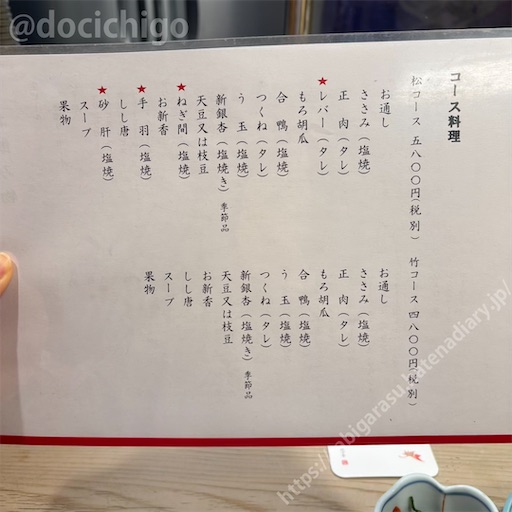 @docichigo
コース料理
松コース 五八〇〇円(税別)
お通し
ささみ(塩焼)
正 肉(タレ)
★レバー(タレ)
もろ胡瓜
合 鴨(塩焼)
つくね(タレ)
う 玉(塩焼)
新銀杏(塩焼き) 季節品
天豆又は枝豆
★ねぎ間(塩焼)
お新香
★手 羽(塩焼)
しし唐
★砂 肝(塩焼)
スープ
果物
竹コース 四八〇〇円(税別)
お通し
ささみ(塩焼)
正 肉(タレ)
もろ胡瓜
合 鴨(塩焼)
う 玉(塩焼)
つくね(タレ)
新銀杏(塩焼き) 季節品
天豆又は枝豆
お新香
しし唐
スープ
果物